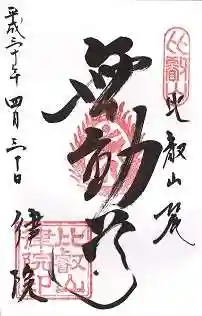 比叡
比叡山麓
無動尊
平成三十年四月三十日
律院
比叡山
律院印